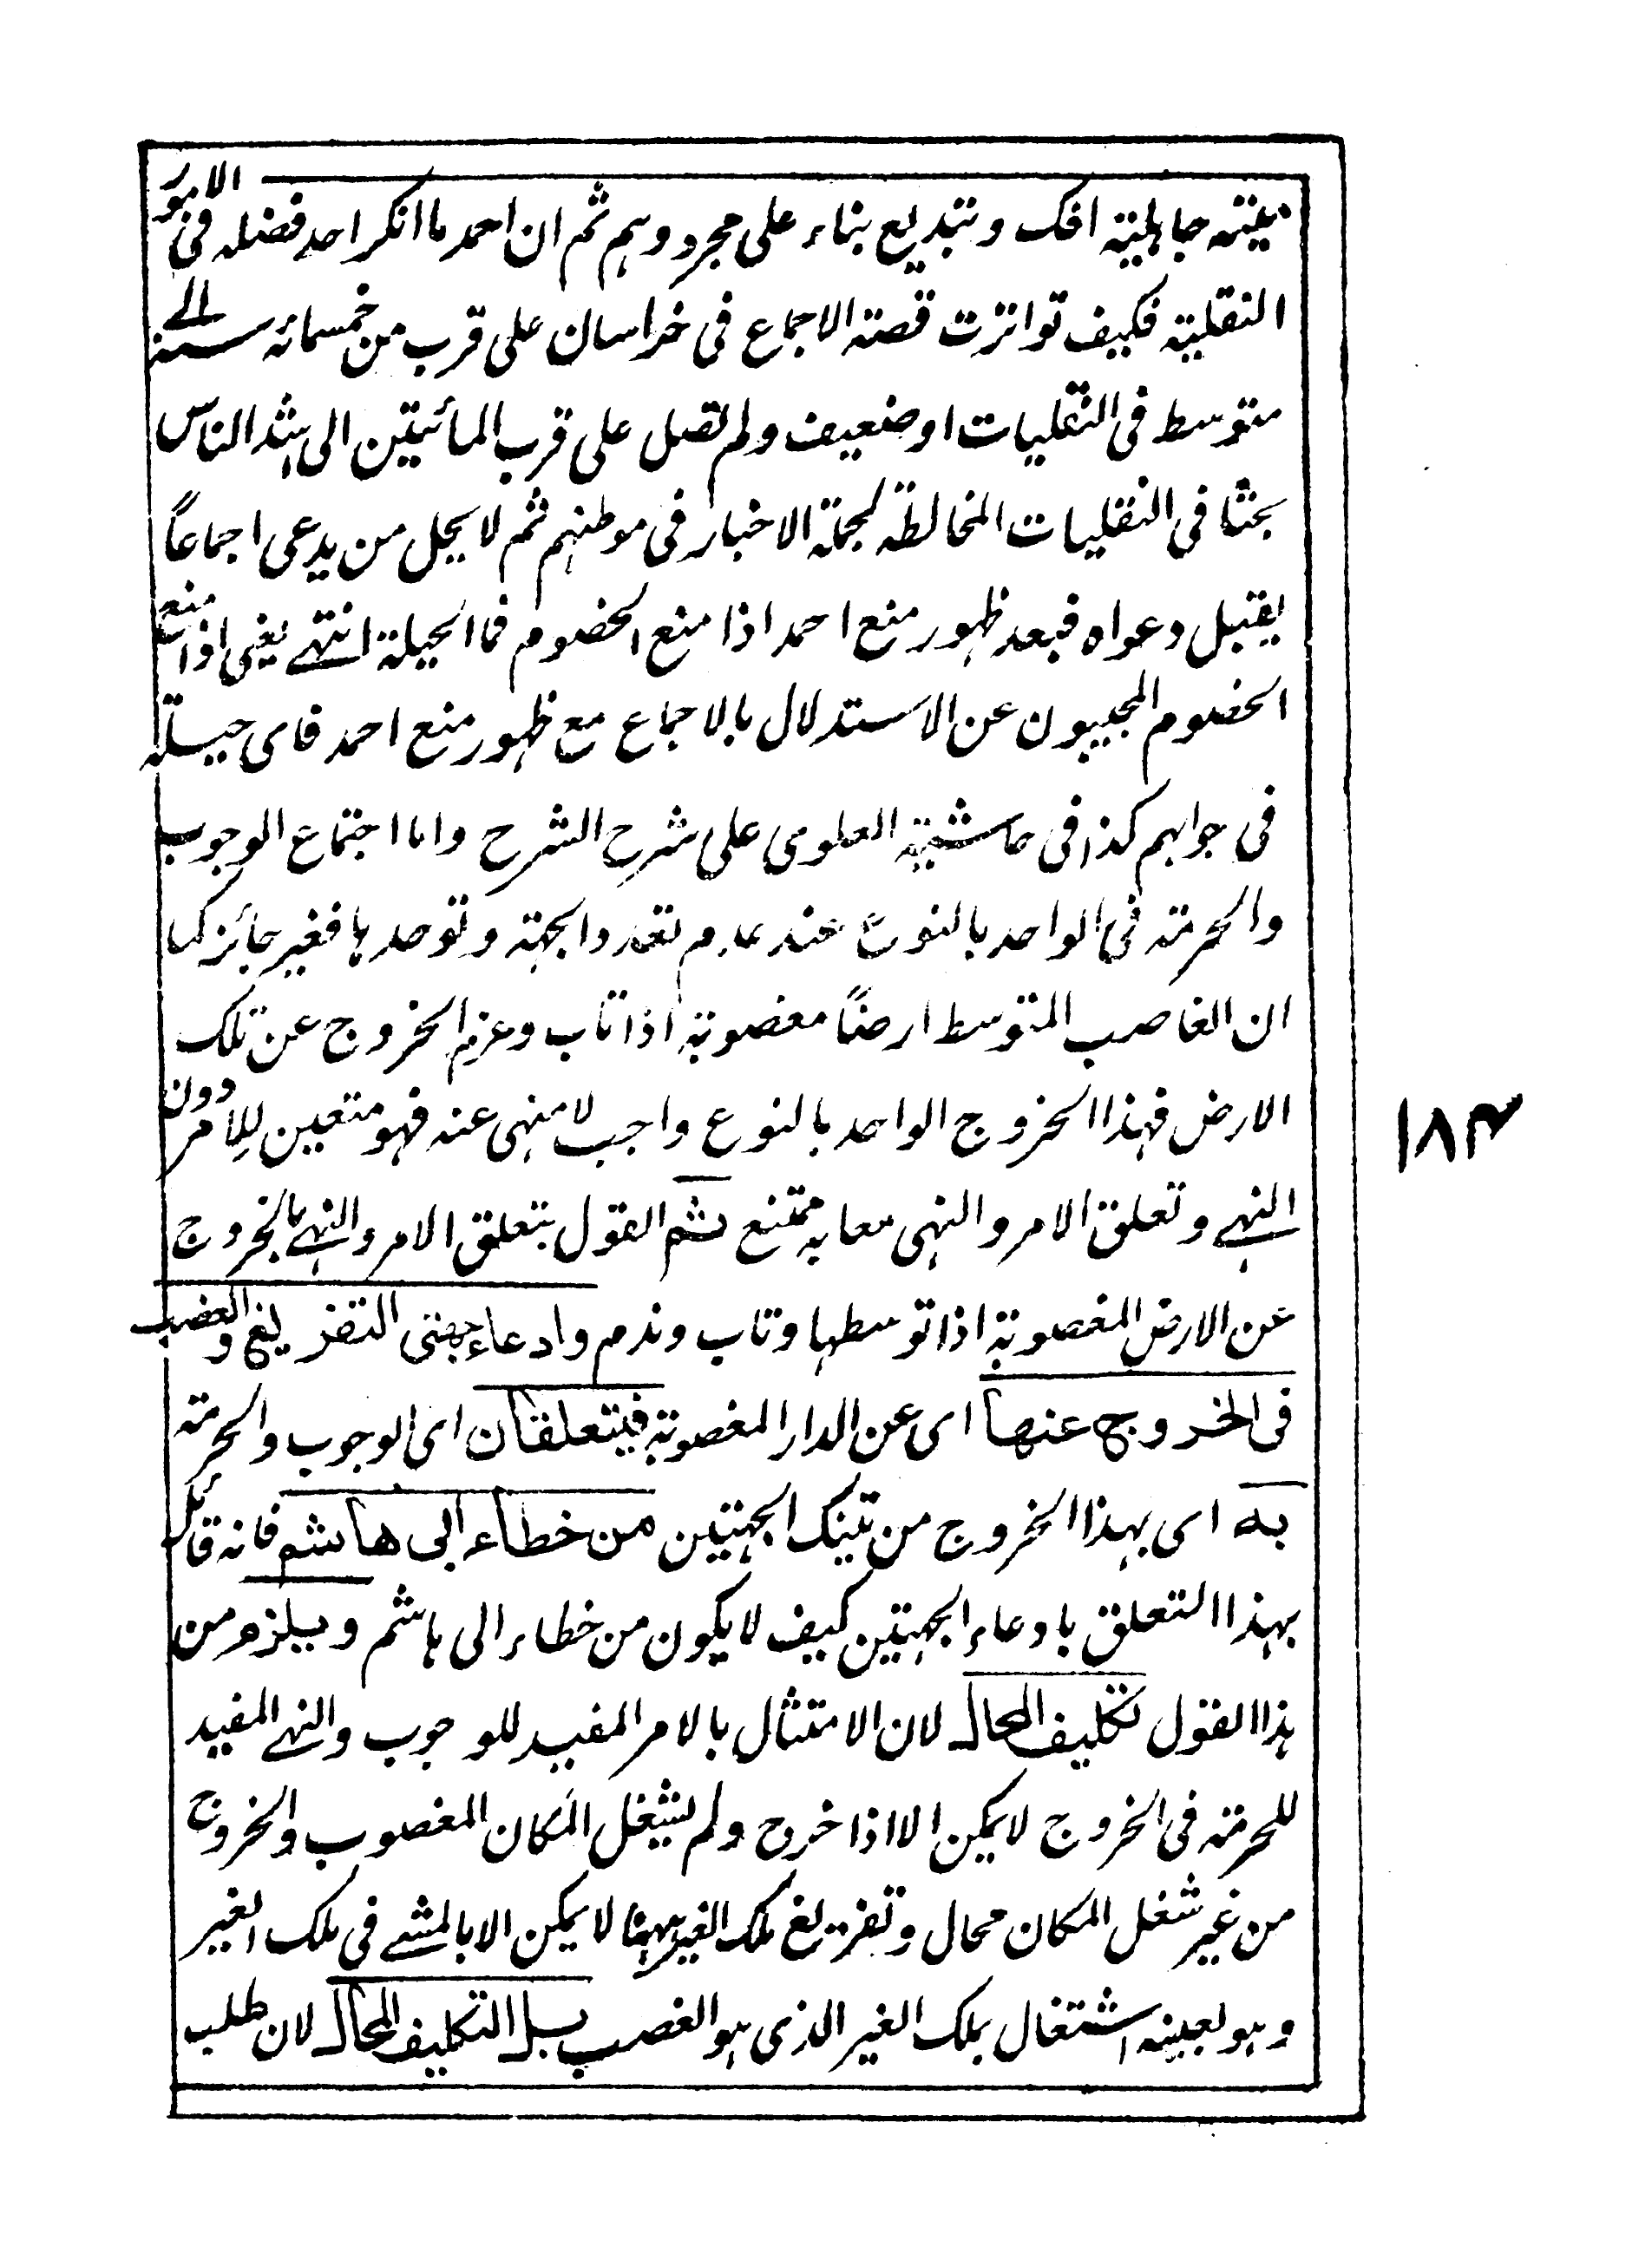 ميتة جاهلية افك وتبديع بناء على مجرد وهم ثم ان احمد ما انكر احد فضله فى الامور
النقلية فكيف تواترت قصة الاجماع فى خراسان على قرب من خمسمائه سنة الى
متوسط فى النقليات او ضعيف ولم تصل على قرب المائتين الى اشد الناس
بحثا فى النقليات المخالطة لجملة الاخبار فى موطنهم ثم لا يحل من يدعى اجماعاً
يقبل دعواه فبعد ظهور منع احمد اذا منع الخصوم فما الحيلة انتهى يعنى اذا منع
الخصوم المجيبون عن الاستدلال بالاجماع مع ظهور منع احمد فاى حيلة
فى جوابهم كذا فى حاشية العلومى على شرح الشرح واما اجتماع الوجوب
والحرمة فى الواحد بالنوع عند عدم تعدد الجهة وتوحدها فغير جائز كما
ان الغاصب المتوسط ارضاً مغصوبة اذا تاب وعزم الخروج عن تلك
الارض فهذا الخروج الواحد بالنوع واجب لا منهى عنه فهو متعين للامر دون
النهى وتعلق الامر والنهى معا به ممتنع ثم القول بتعلق الامر والنهى بالخروج
عن الارض المغصوبة اذا توسطها وتاب وندم وادعاء جهتى التفريغ والغصب
فى الخروج عنها اى عن الدار المغصوبة فيتعلقان اى الوجوب والحرمة
به اى بهذا الخروج من تينك الجهتين من خطاء ابى هاشم فانه قائل
بهذا التعلق بادعاء الجهتين كيف لا يكون من خطاء ابى هاشم ويلزم من
هذا القول تكليف المحال لان الامتثال بالامر المفيد للوجوب والنهى المفيد
للحرمة فى الخروج لا يمكن الا اذا خرج ولم يشغل المكان المغصوب والخروج
من غير شغل المكان محال وتفريغ ملك الغير ههنا لا يمكن الا بالمشى فى ملك الغير
وهو بعينه اشتغال بملك الغير الذى هو الغصب بل التكليف المحال لان طلب
۱۸۳